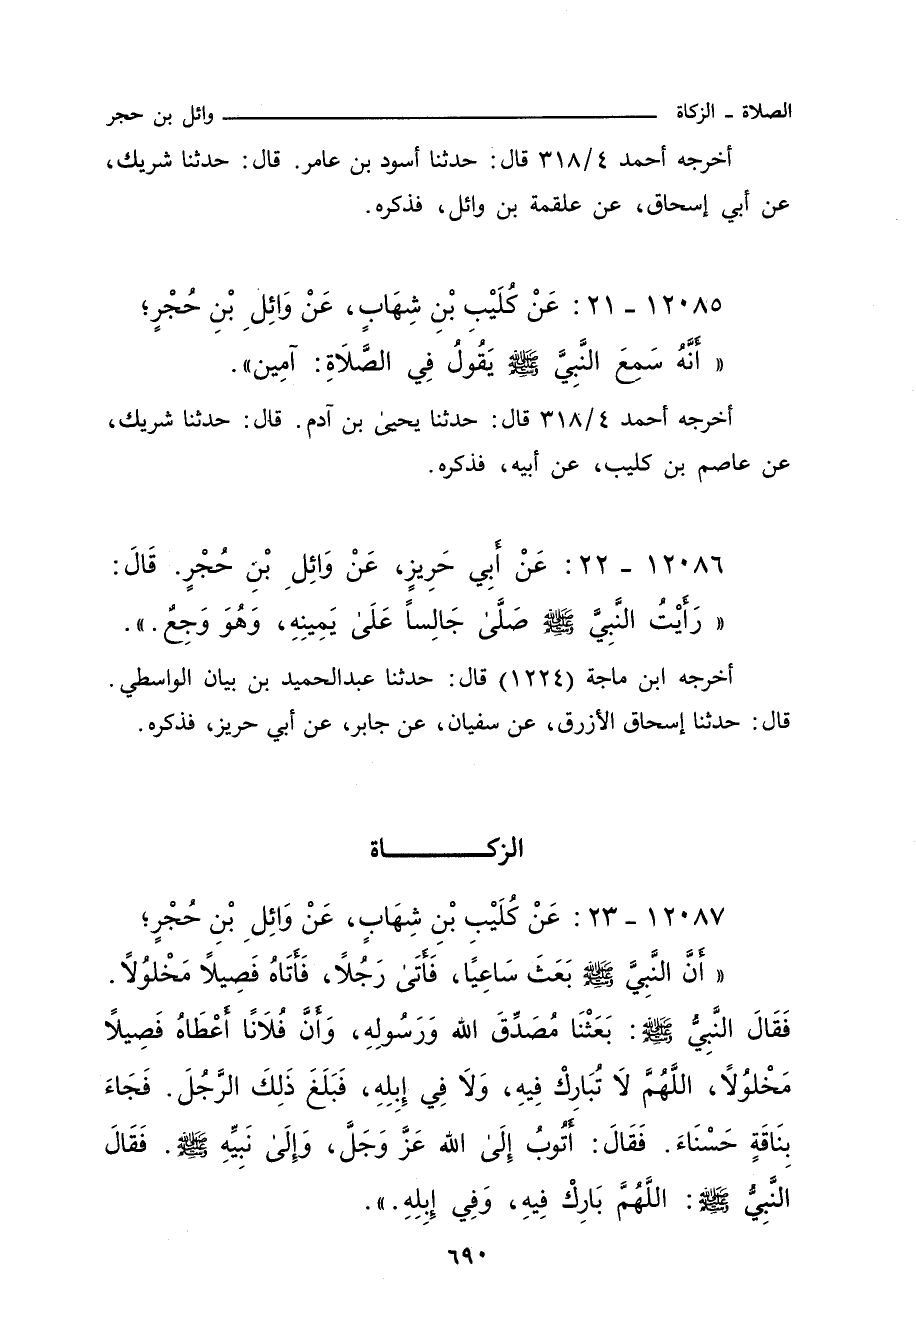 الصلاة ـ الزكاة ــــــــــ وائل بن حجر
أخرجه أحمد ٣١٨/٤ قال: حدثنا أسود بن عامر. قال: حدثنا شريك،
عن أبي إسحاق، عن علقمة بن وائل، فذكره.
١٢٠٨٥ ـ ٢١: عَنْ كُلَيْبِ بْنِ شِهَابٍ، عَنْ وَائِلِ بْنِ حُجْرٍ؛
« أَنَّهُ سَمِعَ النَّبِيَّ ﷺ يَقُولُ فِي الصَّلَاةِ: آمِين».
أخرجه أحمد ٣١٨/٤ قال: حدثنا يحيىٰ بن آدم. قال: حدثنا شريك،
عن عاصم بن كليب، عن أبيه، فذكره.
١٢٠٨٦ ـ ٢٢: عَنْ أَبِي حَرِيزٍ، عَنْ وَائِلِ بْنِ حُجْرٍ. قَالَ:
« رَأَيْتُ النَّبِيَّ ﷺ صَلَّىٰ جَالِساً عَلَىٰ يَمِينِهِ، وَهُوَ وَجِعٌ.».
أخرجه ابن ماجة (١٢٢٤) قال: حدثنا عبدالحميد بن بيان الواسطي.
قال: حدثنا إسحاق الأزرق، عن سفيان، عن جابر، عن أبي حريز، فذكره.
الزكــــــــاة
١٢٠٨٧ ـ ٢٣: عَنْ كُلَيْبِ بْنِ شِهَابٍ، عَنْ وَائِلِ بْنِ حُجْرٍ؛
« أَنَّ النَّبِيَّ ﷺ بَعَثَ سَاعِيًا، فَأَتَىٰ رَجُلاً، فَأَتَاهُ فَصِيلاً مَخْلُولًا.
فَقَالَ النَّبِيُّ ﷺ: بَعَثْنَا مُصَدِّقَ الله وَرَسُولِهِ، وَأَنَّ فُلَانًا أَعْطَاهُ فَصِيلاً
مَخْلُولًا، اللَّهُمَّ لَا تُبَارِكْ فِيهِ، وَلَا فِي إِبِلِهِ، فَبَلَغَ ذَلِكَ الرَّجُلَ. فَجَاءَ
بِنَاقَةٍ حَسْنَاءَ. فَقَالَ: أَتُوبُ إِلَىٰ الله عَزَّ وَجَلَّ، وَإِلَىٰ نَبِيِّهِ ﷺ. فَقَالَ
النَّبِيُّ ﷺ: اللَّهُمَّ بَارِكْ فِيهِ، وَفِي إِبِلِهِ.».
٦٩٠